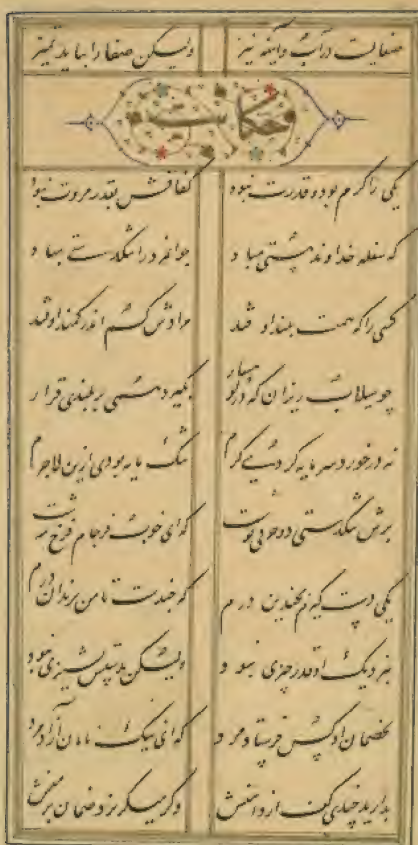 صفاییست در آب و آیینه نیز ولیکن صفا را بباید تمیز
حکایت
یکی را کرم بود و قدرت نبود کفافش بقدر مروت نبود
که سفله خداوند هستی مباد جوانمرد را تنگدستی مباد
کسی را که همت بلند اوفتد مرادش کم اندر کمند اوفتد
چو سیلاب ریزان که در کوهسار نگیرد همی بر بلندی قرار
نه در خورد سرمایه کردی کرم تنک مایه بودی ازین لاجرم
برش تنگدستی دو حرفی نوشت که ای خوب فرجام فرخ سرشت
یکی دست گیرم بچندین درم که چندست تا من بزندان درم
بنزدیک او قدر چیزی نبود ولیکن بدستش پشیزی نبود
بخصمان او کس فرستاد مرد که ای نیک نامان آزاد مرد
بدارید چندی کف از دامنش وگر میگریزد ضمان بر منش